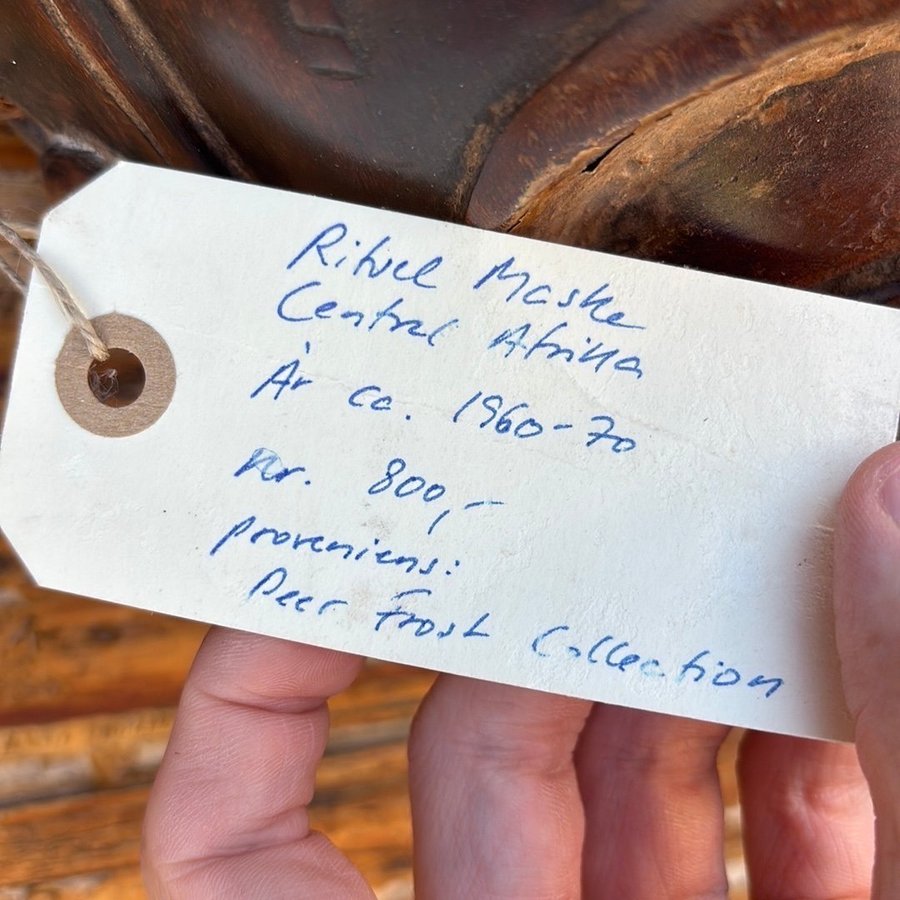 Rituel Maske
Central Afrika
År ca. 1960-70
Kr. 800,-
proveniens:
Peer Frost Collection